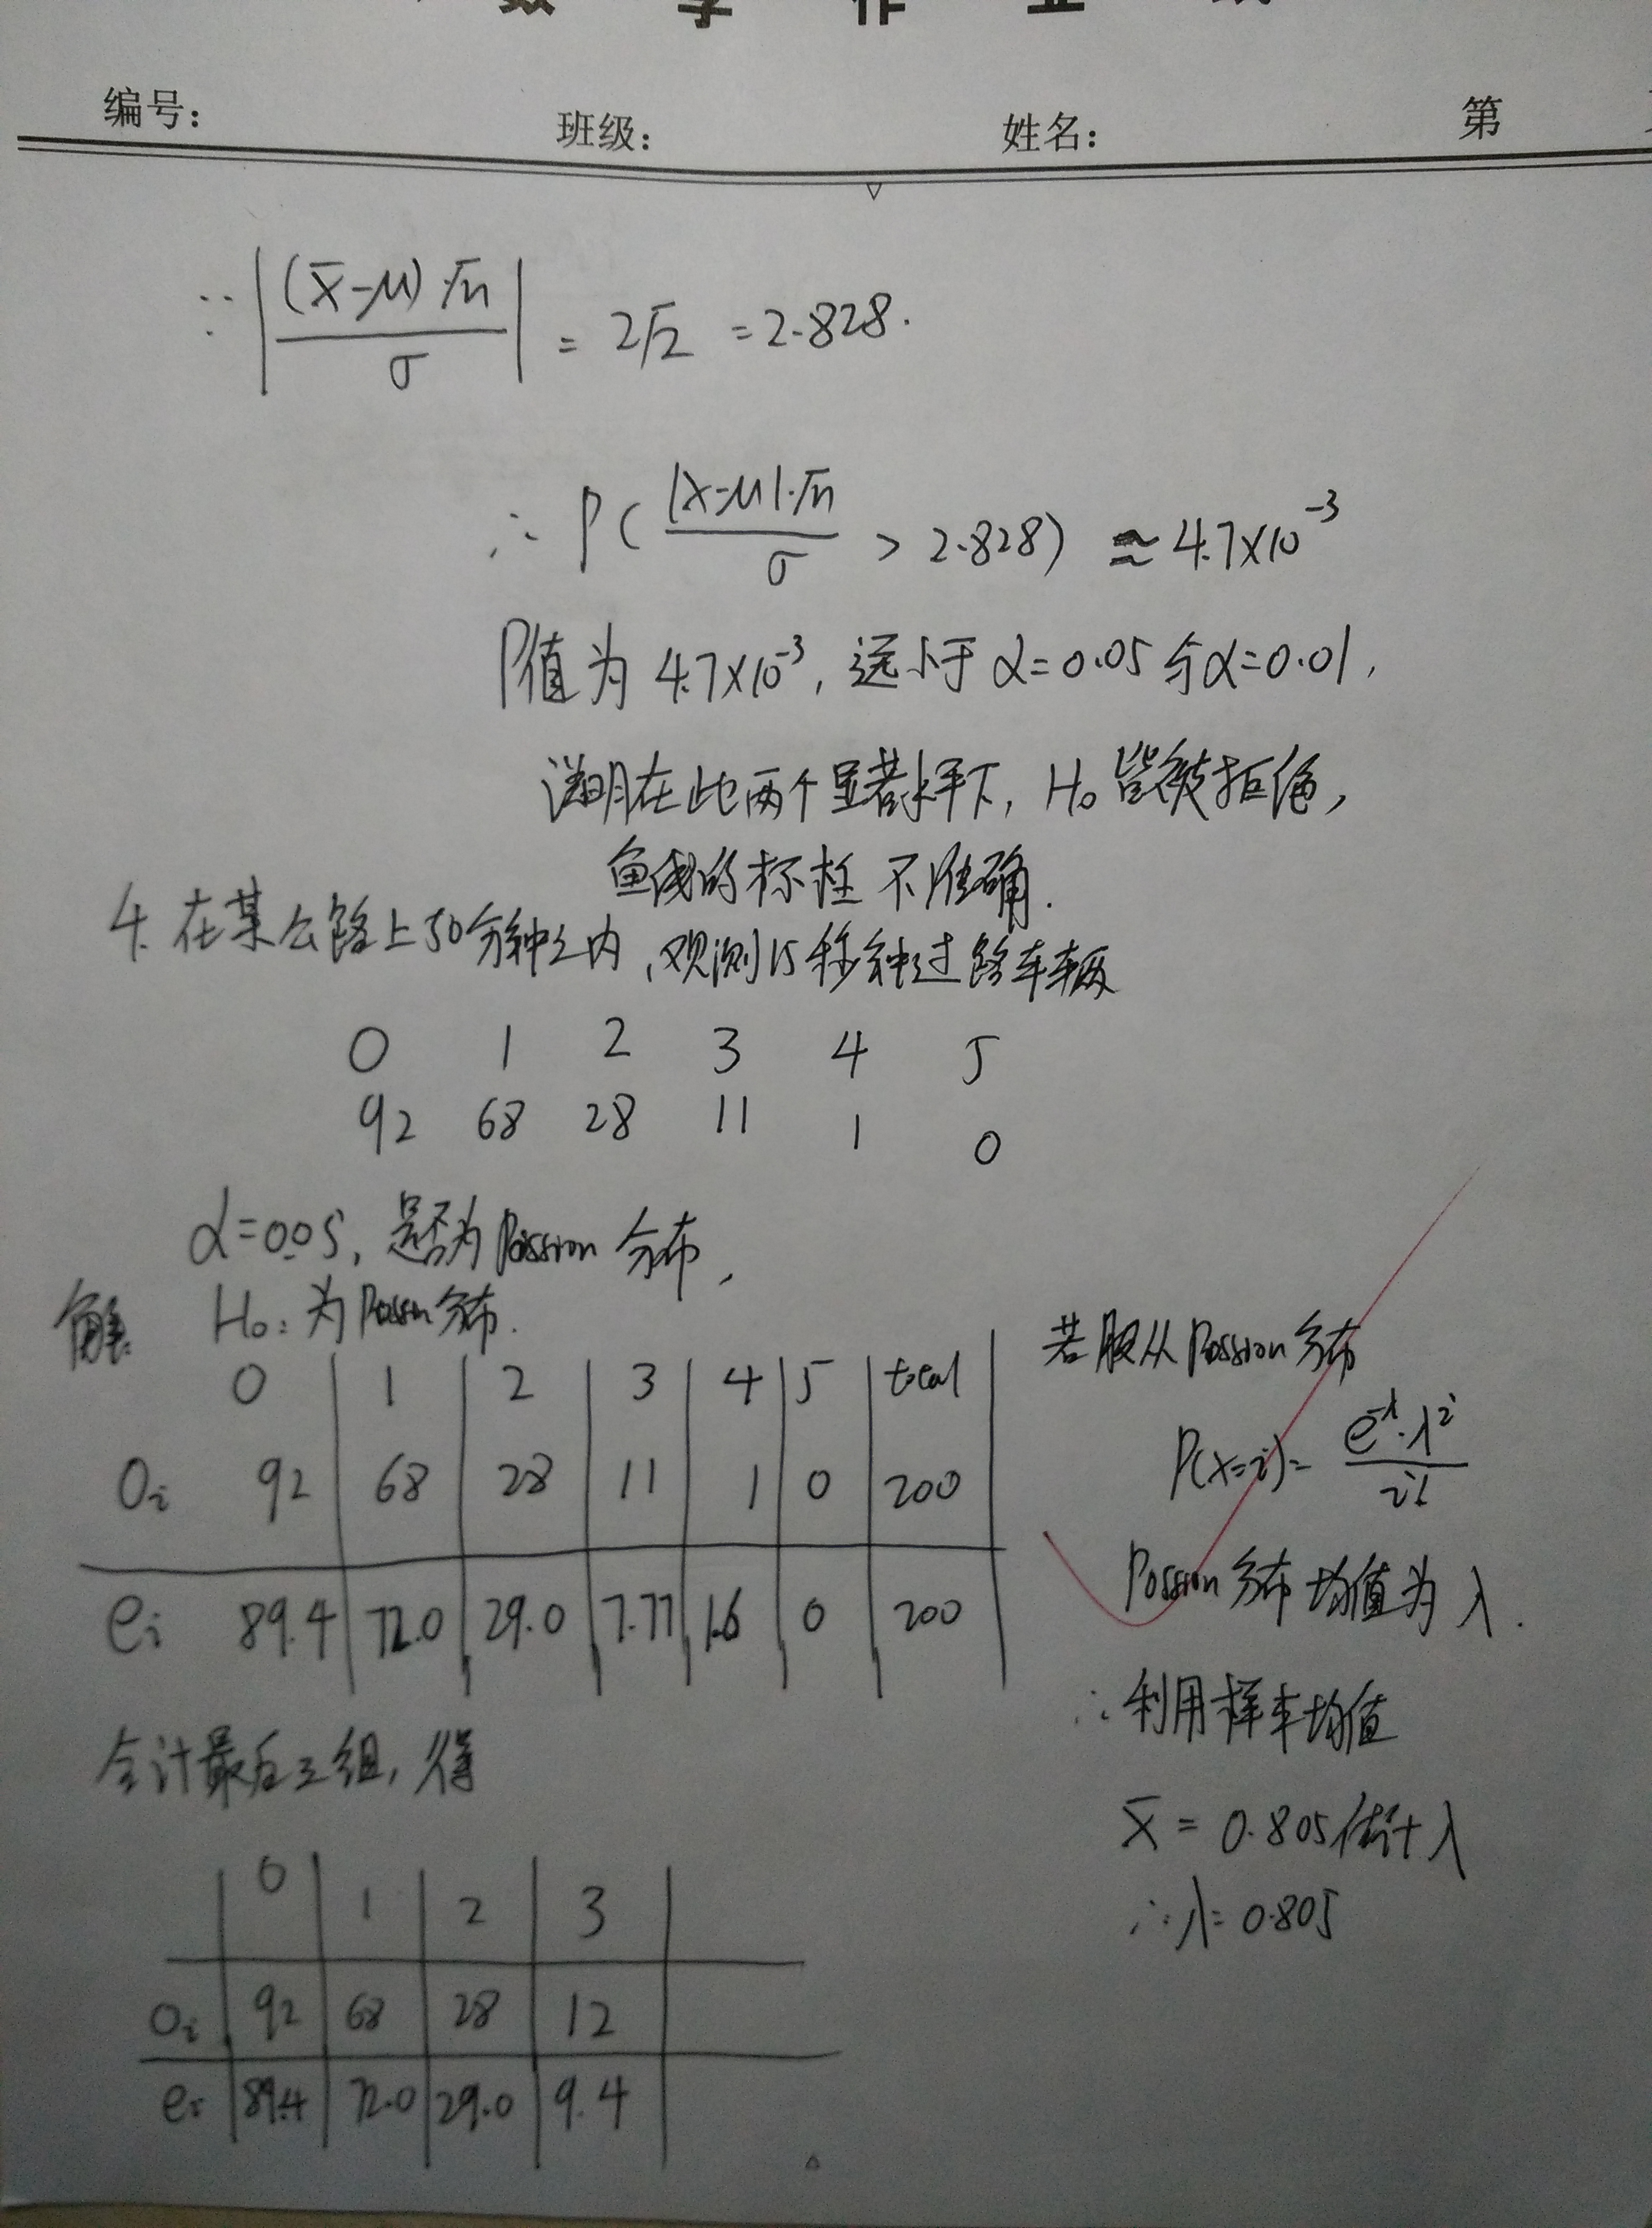 数学作业纸
编号： 班级： 姓名： 第
∵ |(x̄-μ)·√n / σ| = 2√2 = 2.828.
∴ P( |x̄-μ|·√n / σ > 2.828) ≈ 4.7×10⁻³
P值为 4.7×10⁻³, 远小于 α=0.05 与 α=0.01,
说明在此两个显著水平下, H₀ 皆被拒绝,
鱼线的标柱 不准确.
4. 在某公路上50分钟之内、观测15秒钟过路车辆
0 1 2 3 4 5
92 68 28 11 1 0
α=0.05, 是否为 Possion 分布,
解: H₀: 为 Possion 分布.
0 1 2 3 4 5 total
Oi 92 68 28 11 1 0 200
ei 89.4 72.0 29.0 7.77 1.6 0 200
合计最后三组, 得
0 1 2 3
Oi 92 68 28 12
ei 89.4 72.0 29.0 9.4
若服从 Possion 分布
P(x=i)= e^-λ·λ^i / i!
Possion 分布均值为 λ.
∴ 利用样本均值
x̄ = 0.805 估计 λ
∴ λ= 0.805